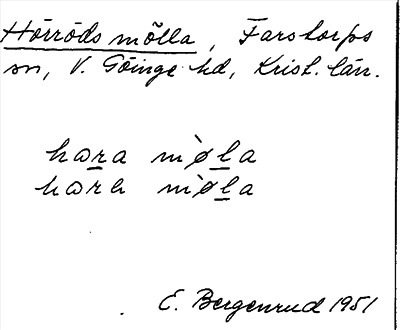 Hörröds mölla, Farstorps
sn, V. Göinge hd, Krist. län.
hara mø̀la
harh mø̀la
E. Bergenrud 1951